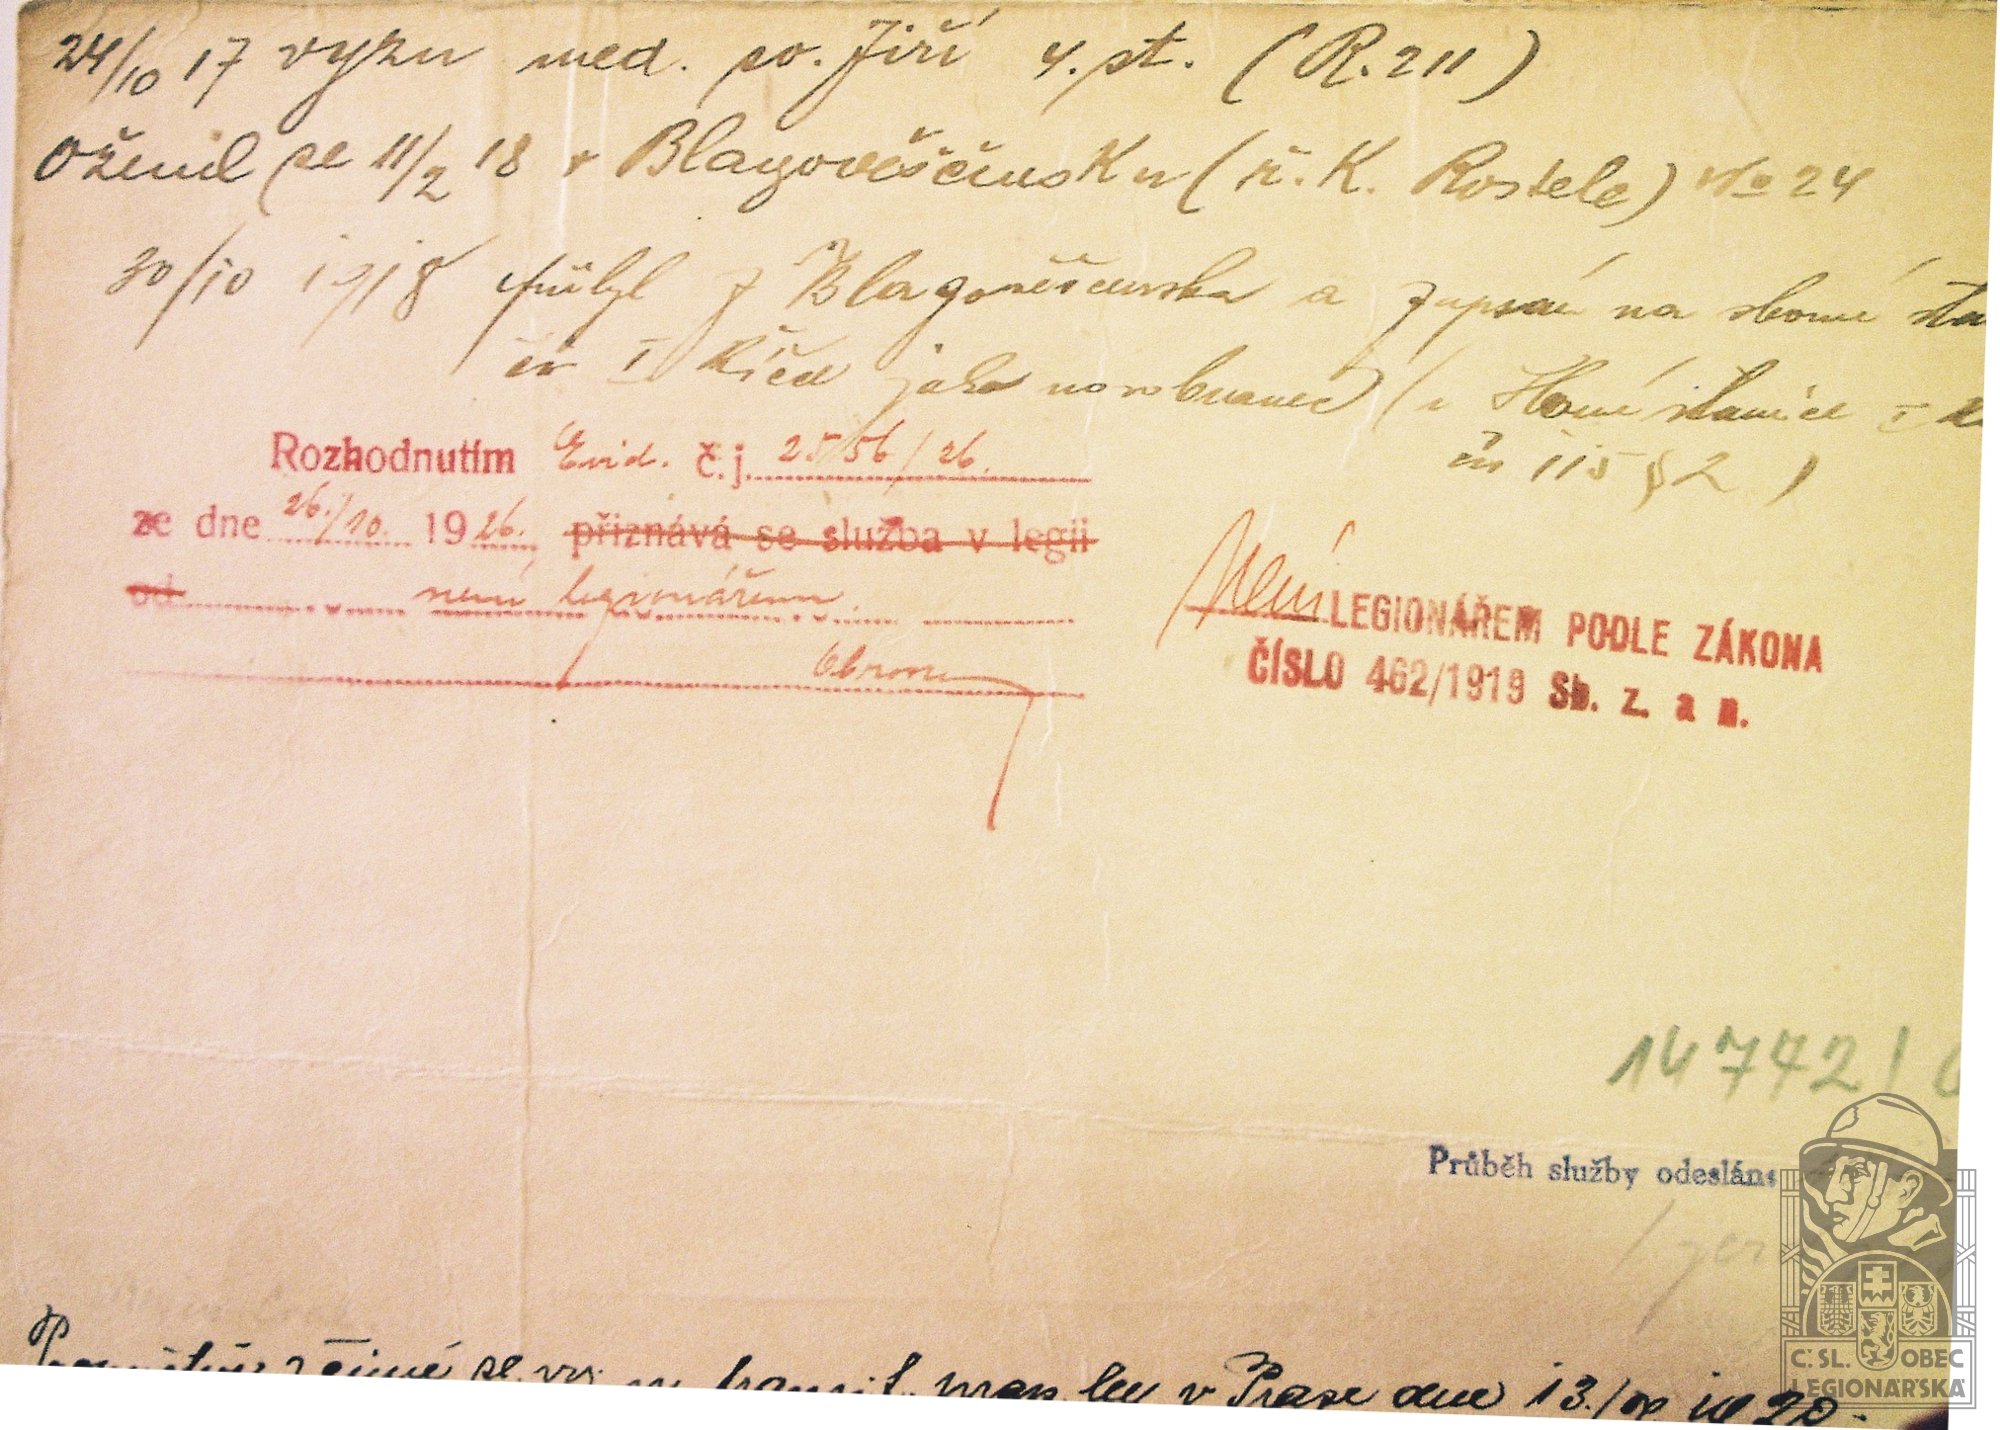 24/10 17 vyzn med. sv. Jiří 4. st. (R. 211)
Oženil se 11/2 18 v Blagověščensku (ř. K. Kostele) No 24
30/10 1918 přibyl z Blagověščenska a zapsán na sborné sta
čís I jako novobranec
čís 115 § 2 )
Rozhodnutím Evid. č. j. 25156/26.
ze dne 26./10. 1926. přiznává se služba v legii
od není legionářem.
Není LEGIONÁŘEM PODLE ZÁKONA
ČÍSLO 462/1919 Sb. z. a n.
14742/
Průběh služby odeslán
v Praze dne 13./ 1920.
Č. SL. OBEC
LEGIONÁRSKÁ